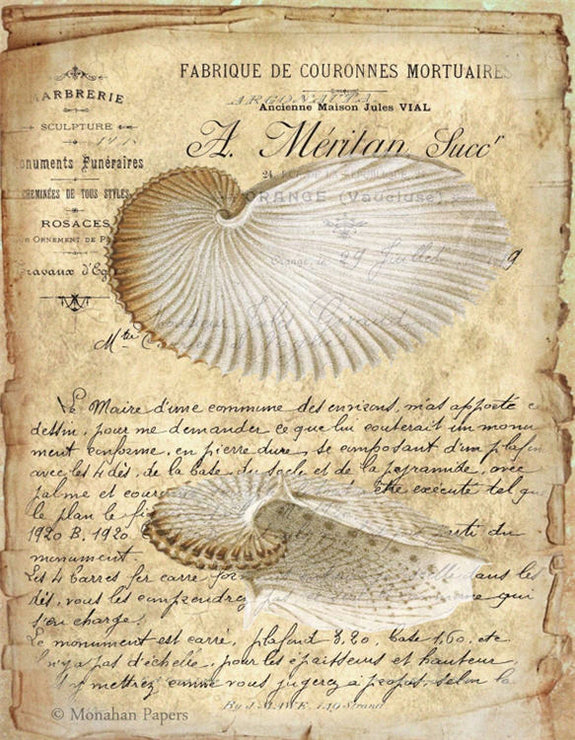 FABRIQUE DE COURONNES MORTUAIRES
ARGONAUTA
Ancienne Maison Jules VIAL
A. Méritan Succr
24,
ORANGE (Vaucluse)
Orange, le 29 Juillet 19
MARBRERIE
SCULPTURE
Monuments Funéraires
CHEMINÉES DE TOUS STYLES
ROSACES
ORNEMENT DE
Travaux d'Eg
Mte
Le Maire d'une commune des environs, m'as apporté ce
dessin, pour me demander ce que lui couterait un monu
ment conforme, en pierre dure, se composant d'un plafon
avec les 4 dés, de la base du socle et de la pyramide, avec
palme et être exécuté tel que
le plan le
1920 B. 1920. du
monument
Les 4 barres fer carré dans les
dés, vous les comprendrez que
l'on charge.
Le monument est carré, plafond 3,20 base 1,60, etc
n'y a pas d'échelle, pour les épaisseurs et hauteur
mettrez comme vous jugerez a propos, selon la
By J. MAWE, 149 Strand
© Monahan Papers